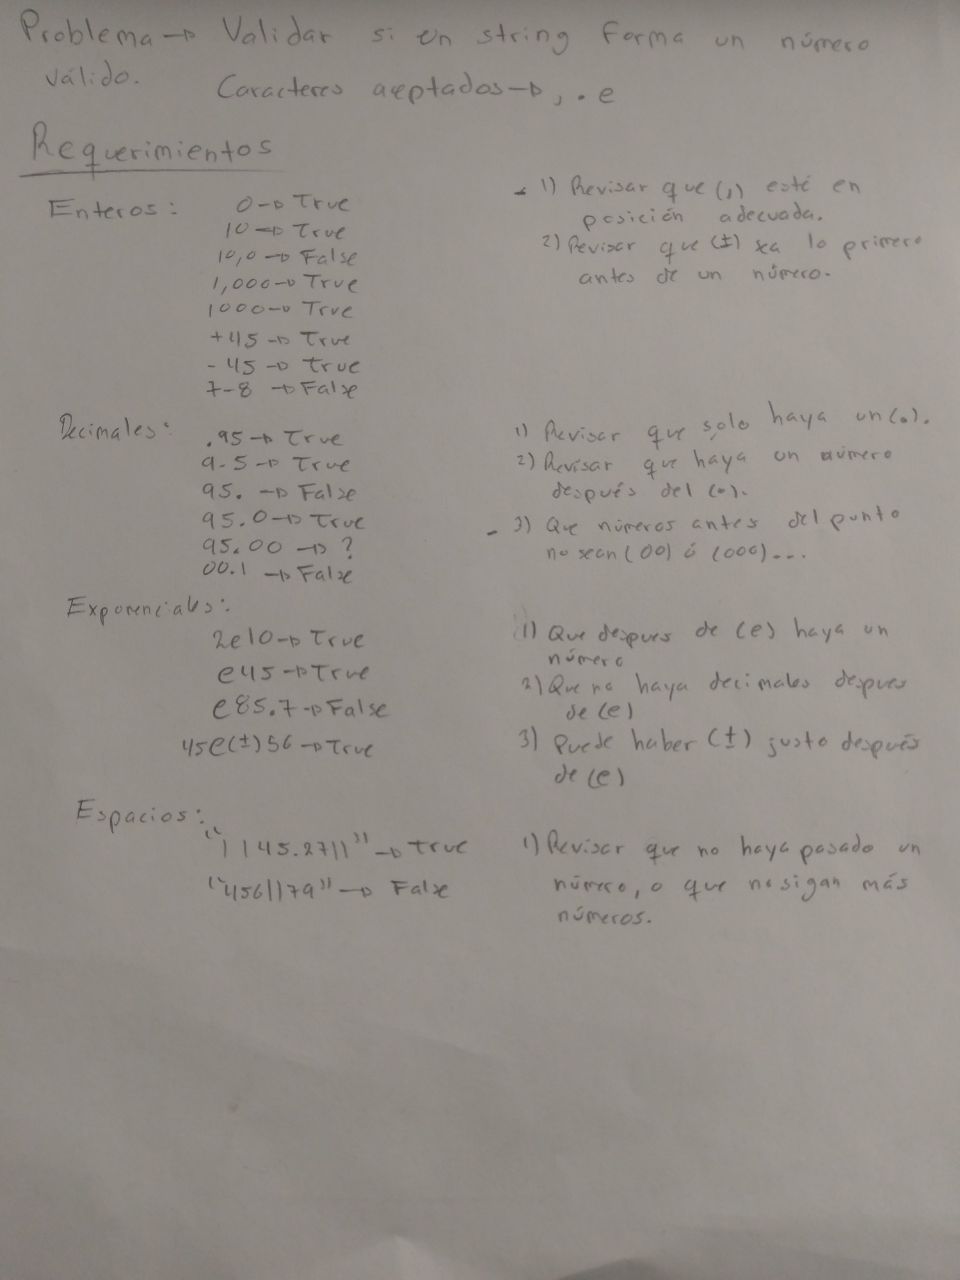 Problema → Validar si un string forma un número
válido. Caracteres aceptados → , . e
Requerimientos
Enteros: 0 → True
10 → True
10,0 → False
1,000 → True
1000 → True
+45 → True
-45 → True
7-8 → False
- 1) Revisar que (,) esté en
posición adecuada.
2) Revisar que (±) sea lo primero
antes de un número.
Decimales: .95 → True
9.5 → True
95. → False
95.0 → True
95.00 → ?
00.1 → False
1) Revisar que solo haya un (.).
2) Revisar que haya un número
después del (.).
- 3) Que números antes del punto
no sean (00) ó (000)...
Exponenciales:
2e10 → True
e45 → True
e85.7 → False
45e(±)56 → True
1) Que despues de (e) haya un
número
2) Que no haya decimales despues
de (e)
3) Puede haber (±) justo después
de (e)
Espacios:
"| | 45.27||" → True
"456||79" → False
1) Revisar que no haya pasado un
número, o que no sigan más
números.